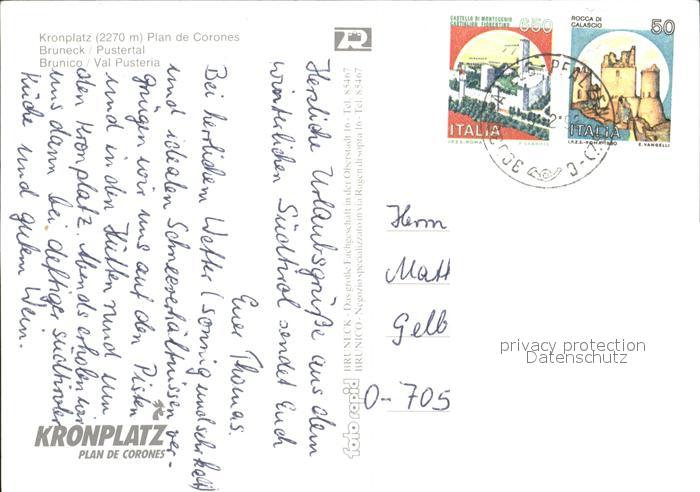 Kronplatz (2270 m) Plan de Corones
Bruneck / Pustertal
Brunico / Val Pusteria
CASTELLO DI MONTECCHIO
CASTIGLION FIORENTINO
650
ITALIA
I.P.Z.S.-ROMA
ROCCA DI
CALASCIO
50
ITALIA
I.P.Z.S.-ROMA-1980
E. VANGELLI
Herzliche Urlaubsgrüße aus dem
winterlichen Südtirol sendet Euch
Euer Thomas.
Bei herrlichem Wetter (sonnig und schi kalt)
und idealen Schneeverhältnissen ver-
gnügen wir uns auf den Pisten
und in den Hütten rund um
den Kronplatz. Abends erholen wir
uns dann bei deftiger südtiroler
Küche und gutem Wein.
foto rapid
BRUNECK - Das große Fachgeschäft in der Oberstadt 16 - Tel. 85467
BRUNICO - Negozio specializzato in via Ragen di sopra 16 - Tel. 85467
Herrn
Matt
Gelb
O-705
privacy protection
Datenschutz
KRONPLATZ
PLAN DE CORONES